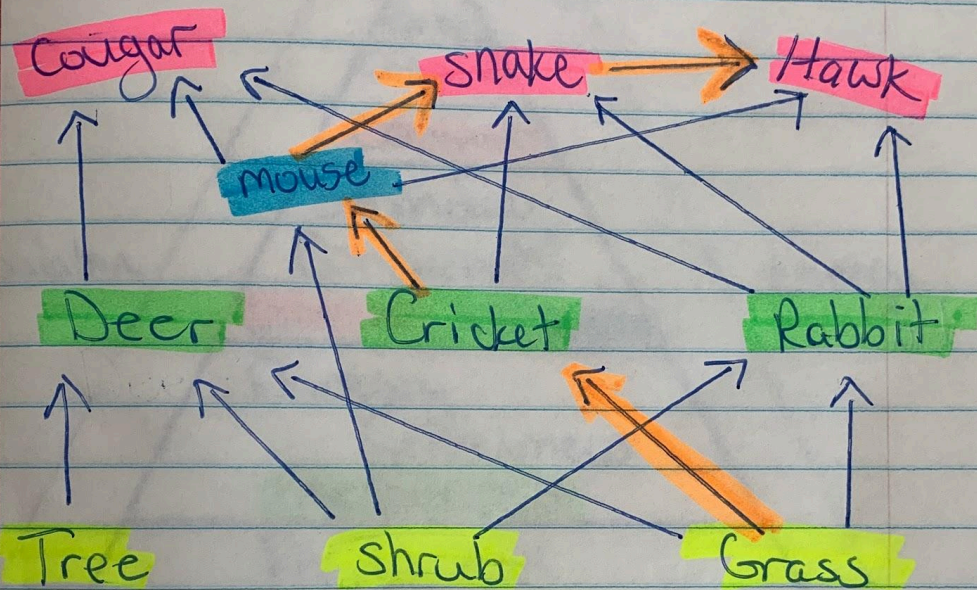 Cougar snake Hawk
mouse
Deer Cricket Rabbit
Tree shrub Grass